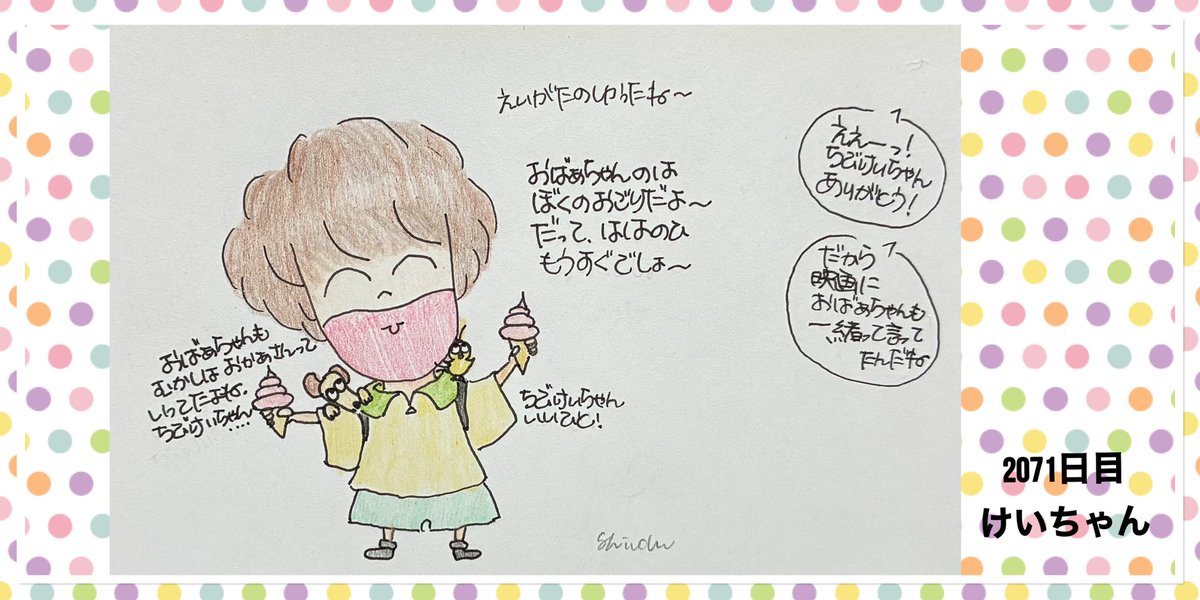 えいがたのしかったね〜
おばぁちゃんのは
ぼくのおごりだよ〜
だって、ははのひ
もうすぐでしょ〜
ええーっ!
ちびけいちゃん
ありがとう!
だから
映画に
おばぁちゃんも
一緒って言って
たんだね
おばぁちゃんも
むかしは おかあさんって
いってたよね。
ちびけいちゃん....
ちびけいちゃん
いいひと!
Shindu
2071日目
けいちゃん